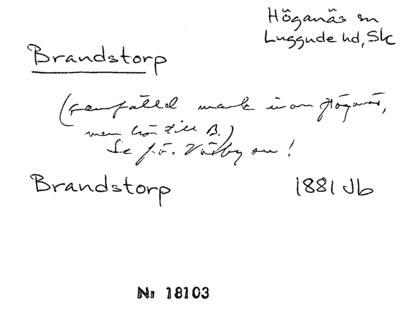 Höganäs sn
Luggude hd, Sk
Brandstorp
(samfälld mark inom Höganäs,
men hör till B.)
Se f.ö. Väsby sn!
Brandstorp 1881 Jb
No 18103